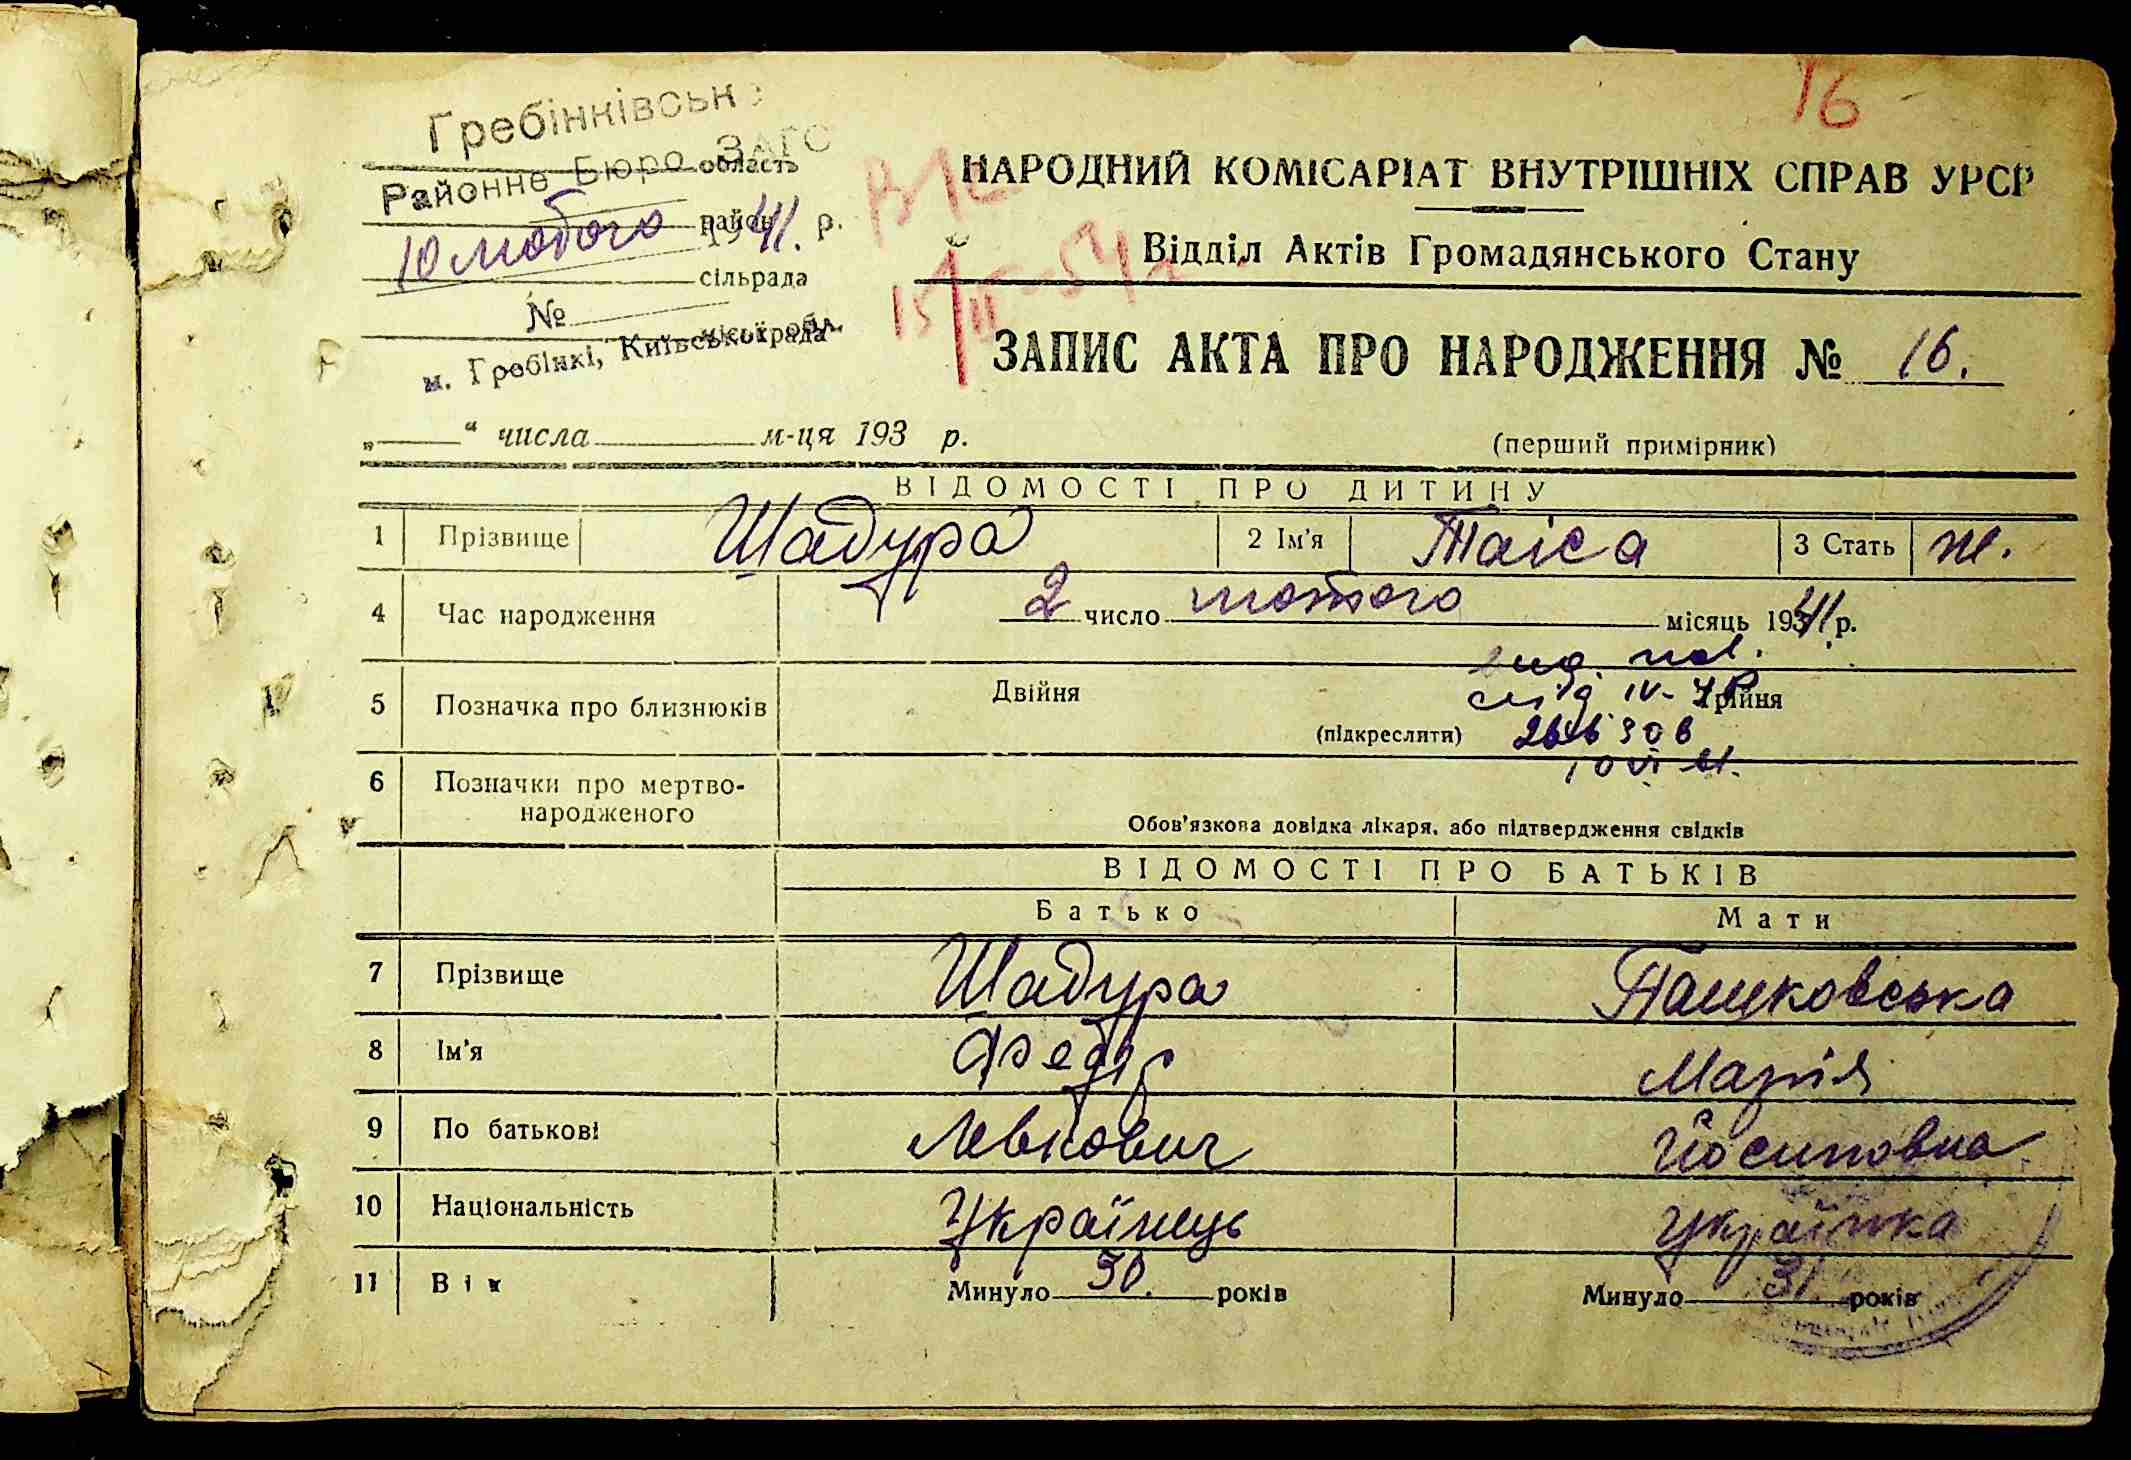 16
Гребінківськ
Районне Бюро ЗАГС
область
10 лютого 1941. р.
район
сільрада
№
міськрада
м. Гребінкі, Київської обл.
НАРОДНИЙ КОМІСАРІАТ ВНУТРІШНІХ СПРАВ УРСР
Відділ Актів Громадянського Стану
ЗАПИС АКТА ПРО НАРОДЖЕННЯ № 16.
„ “ числа м-ця 193 р.
(перший примірник)
ВІДОМОСТІ ПРО ДИТИНУ
1 Прізвище Шадура 2 Ім'я Таіса 3 Стать ж.
4 Час народження 2 число лютого місяць 1941 р.
5 Позначка про близнюків Двійня Трійня
(підкреслити)
6 Позначки про мертво-
народженого
Обов'язкова довідка лікаря, або підтвердження свідків
ВІДОМОСТІ ПРО БАТЬКІВ
Батько Мати
7 Прізвище Шадура Пашковська
8 Ім'я Федір Марія
9 По батькові Левкович Йосиповна
10 Національність Українець Українка
11 Вік Минуло 30. років Минуло 31. років